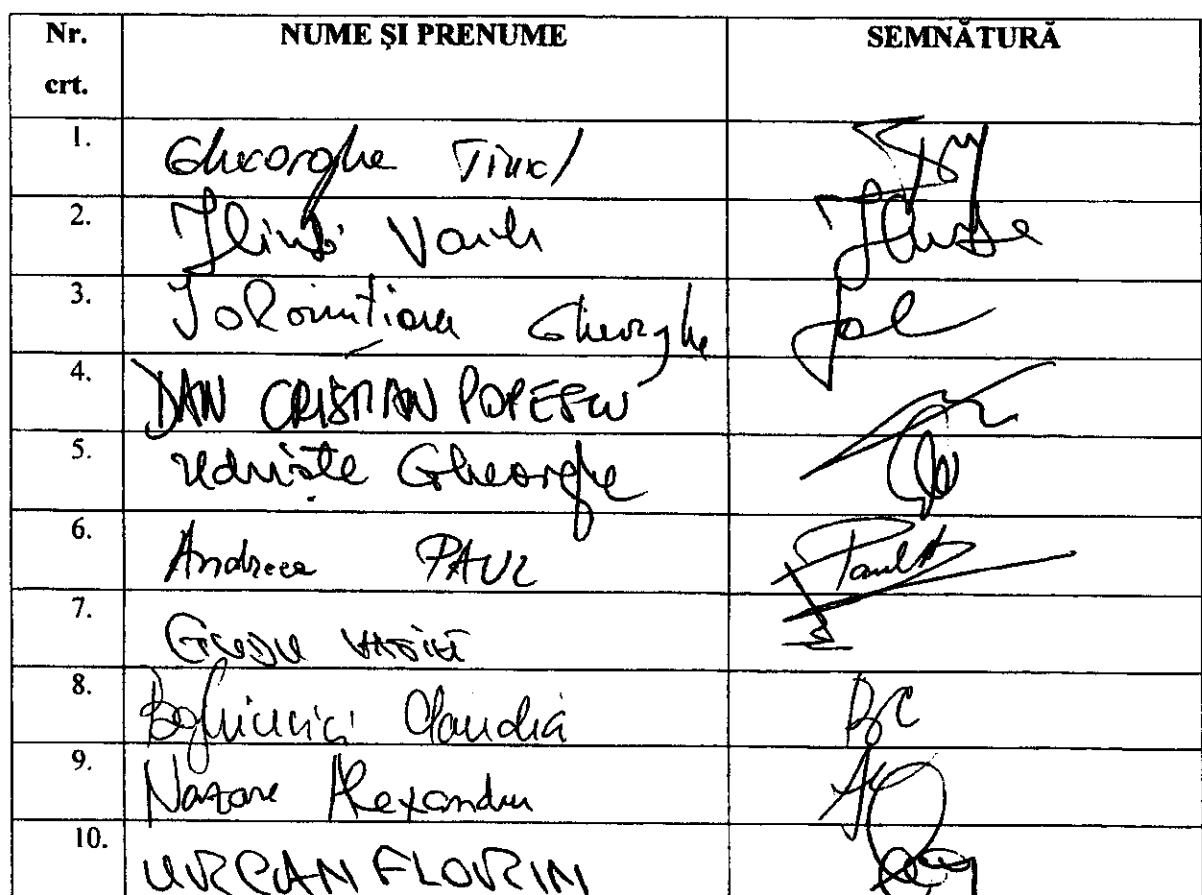 Nr. crt. NUME ŞI PRENUME SEMNĂTURĂ
1. Gheorghe Tinel
2. Ilinca Vasile
3. Ialomițianu Gheorghe
4. DAN CRISTIAN POPESCU
5. Udriște Gheorghe
6. Andreea PAUL Paul A
7. GUDU VASILE
8. Boghicevici Claudia BC
9. Nazare Alexandru
10. URCAN FLORIN